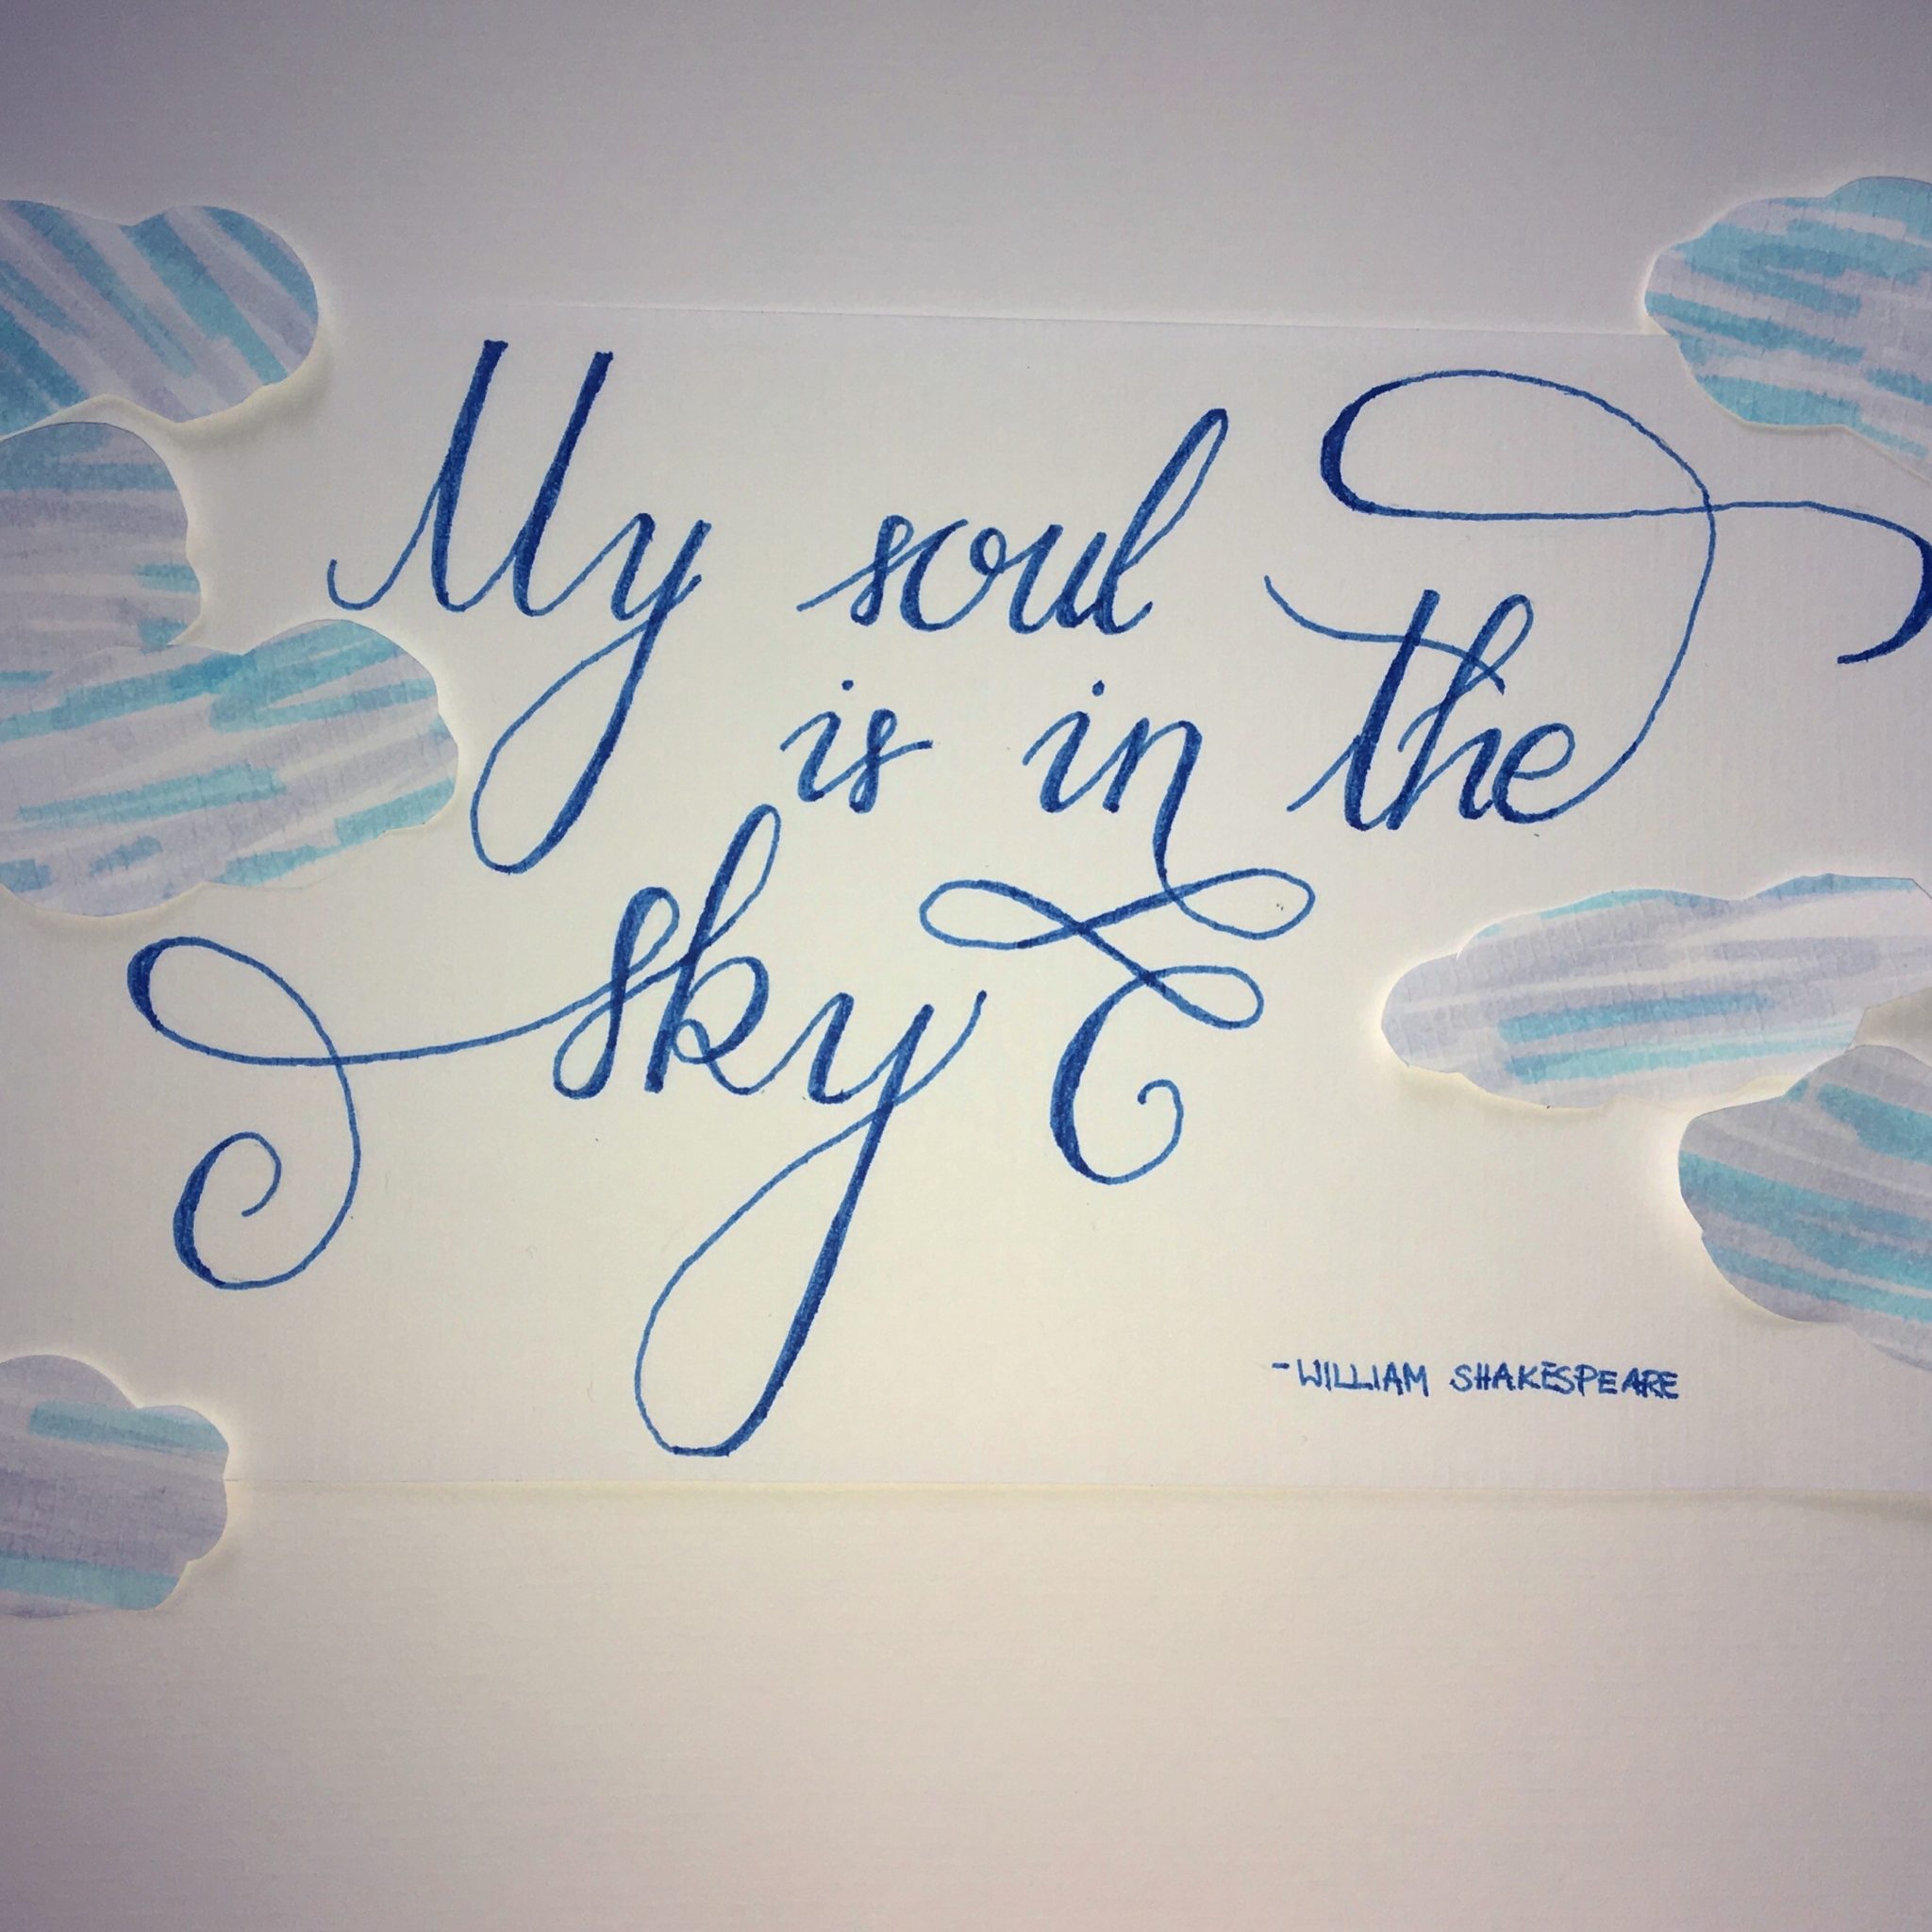 My soul
is in the
sky
-WILLIAM SHAKESPEARE